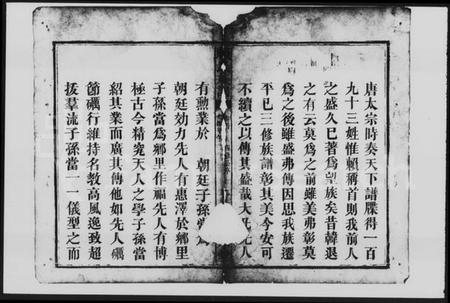 唐太宗時奏天下譜牒得一百
九十三姓惟賴稱首則我前人
之盛久已著為望族矣昔韓退
之有云莫為之前雖美弗彰莫
為之後雖盛弗傳因思我族遷
平已三修族譜彰其美今安可
不續之以傳其盛哉大 先人
有勲業於 朝廷子孫當
朝廷効力先人有惠澤於鄉里
子孫當為鄉里作福先人有博
極古今精究天人之學子孫當
紹其業而廣其傳他如先人
節礪行維持名教高風逸致超
拔羣流子孫當一一儀型之而